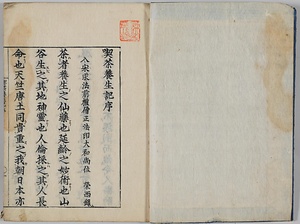 喫茶養生記序
入宋求法前權僧正法印大和尚位 榮西錄
茶者養生之仙藥也延齡之妙術也山
谷生之其地神靈也人倫採之其人長
命也天竺唐土同貴重之我朝日本亦